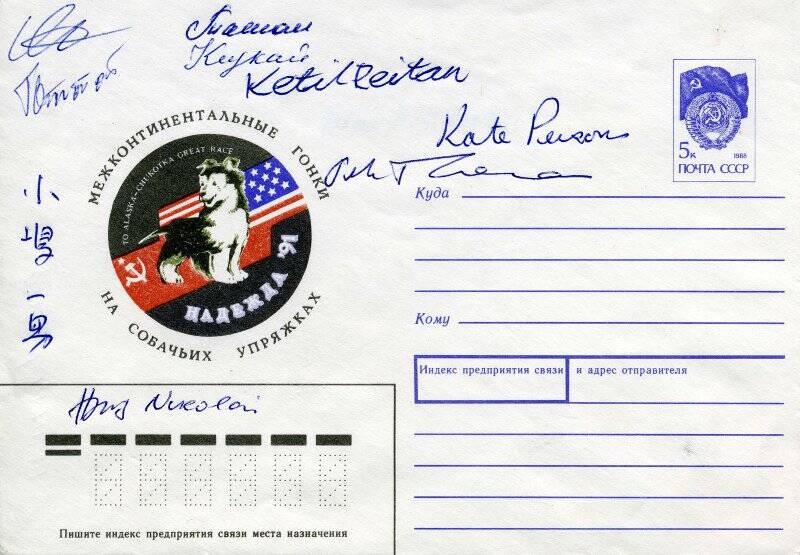 Ketil Reitan
Kate Persons
МЕЖКОНТИНЕНТАЛЬНЫЕ ГОНКИ
TO ALASKA–CHUKOTKA GREAT RACE
НАДЕЖДА '91
НА СОБАЧЬИХ УПРЯЖКАХ
5к 1988
ПОЧТА СССР
Куда
Кому
小嶋一男
Индекс предприятия связи и адрес отправителя
Nikolai
Пишите индекс предприятия связи места назначения